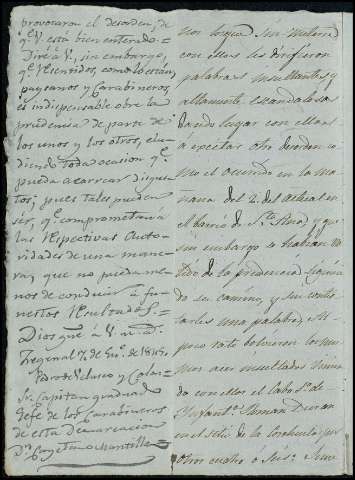 provocaron el desorden, de
q.e V. está bien enterado.=
Diré á V., sin embargo,
q.e reunidos, como lo están,
paysanos y Carabineros
es indispensable obre la
prudencia de parte de
los unos y los otros, elu-
diendo toda ocasion q.e
pueda acarrear disgus-
tos; pues tales pueden
ser, q.e comprometan á
las respectivas Auto-
ridades de una mane-
ra, que no pueda me-
nos de conducir á fu-
nestos resultados.=
Dios gue á V. m. a.
Fregenal 7 de 1845.
Pedro de Velasco y
Sr. Capitan graduad.
Gefe de los Carabineros
de esta demarcacion
D.n Cayetano Mantilla=
con ellos les dirigieron
palabras insultantes y
altamente escandalosas
dando lugar con ellas
a expectar otro desorden co-
mo el ocurrido en la ma-
ñana del 2 del actual en
el barrio de S.ta Ana, y que
sin embargo se habian re-
tido de la prudencia sigien-
do su camino, y sin contes-
tarles una palabra, Al
poco rato bolvieron los mis-
mos á ser insultados
do con ellos el Cabo S.do de
Infant.a Roman Duran
en el sitio de la por
otros cuatro ó seis;